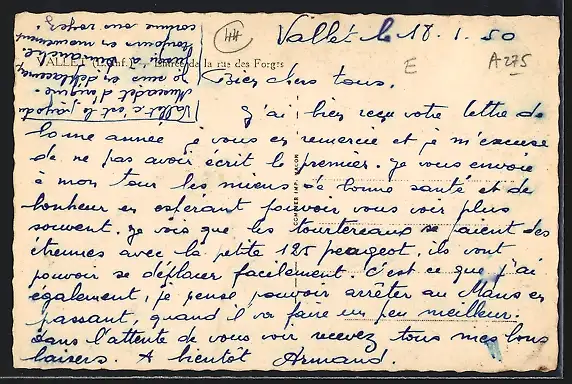 Vallet le 18.1.50
44
E
A275
VALLET (L.-Inf.) — Entrée de la rue des Forges
Bien chers tous.
J'ai bien reçu votre lettre de
bonne année je vous en remercie et je m'excuse
de ne pas avoir écrit le premier. Je vous envoie
à mon tour les miens de bonne santé et de
bonheur en espérant pouvoir vous voir plus
souvent. Je vois que les tourtereaux se paient des
étrennes avec la petite 125 peugeot, ils vont
pouvoir se déplacer facilement. C'est ce que j'ai
également, je pense pouvoir arrêter au Mans en
passant, quand il va faire un peu meilleur.
dans l'attente de vous voir recevez tous mes bons
baisers. A bientôt Armand.
Vallet c'est le pays du
Muscadet d'origine.
je suis en déplacement
toujours en mouvement
comme vous voyez.